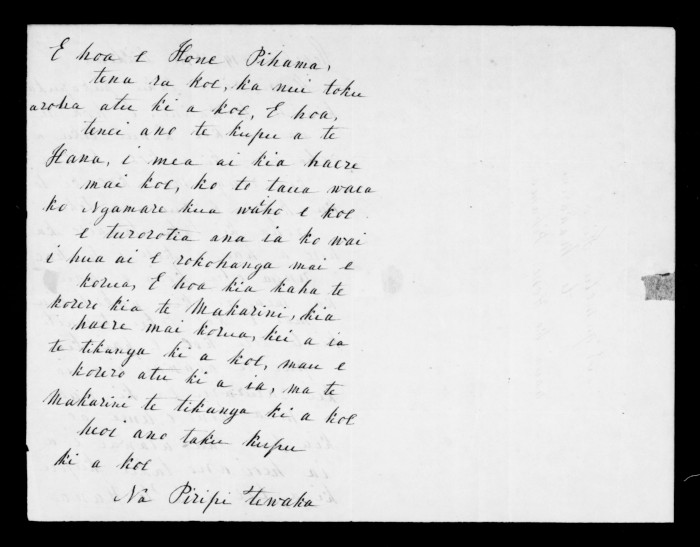 E hoa e Hone Pihama,
tena ra koe, ka nui toku
aroha atu ki a koe, E hoa,
tenei ano te kupu a te
Hana, i mea ai kia haere
mai koe, ko te taua waea
ko Ngamare kua waho e koe
e turorotia ana ia ko wai
i hua ai e rokohanga mai e
korua, E hoa kia kaha te
korero kia te Makarini, kia
haere mai korua, kei a ia
te tikanga ki a koe, mau e
korero atu ki a ia, ma te
Makarini te tikanga ki a koe
heoi ano taku kupu
ki a koe
Na Piripi Tewaka